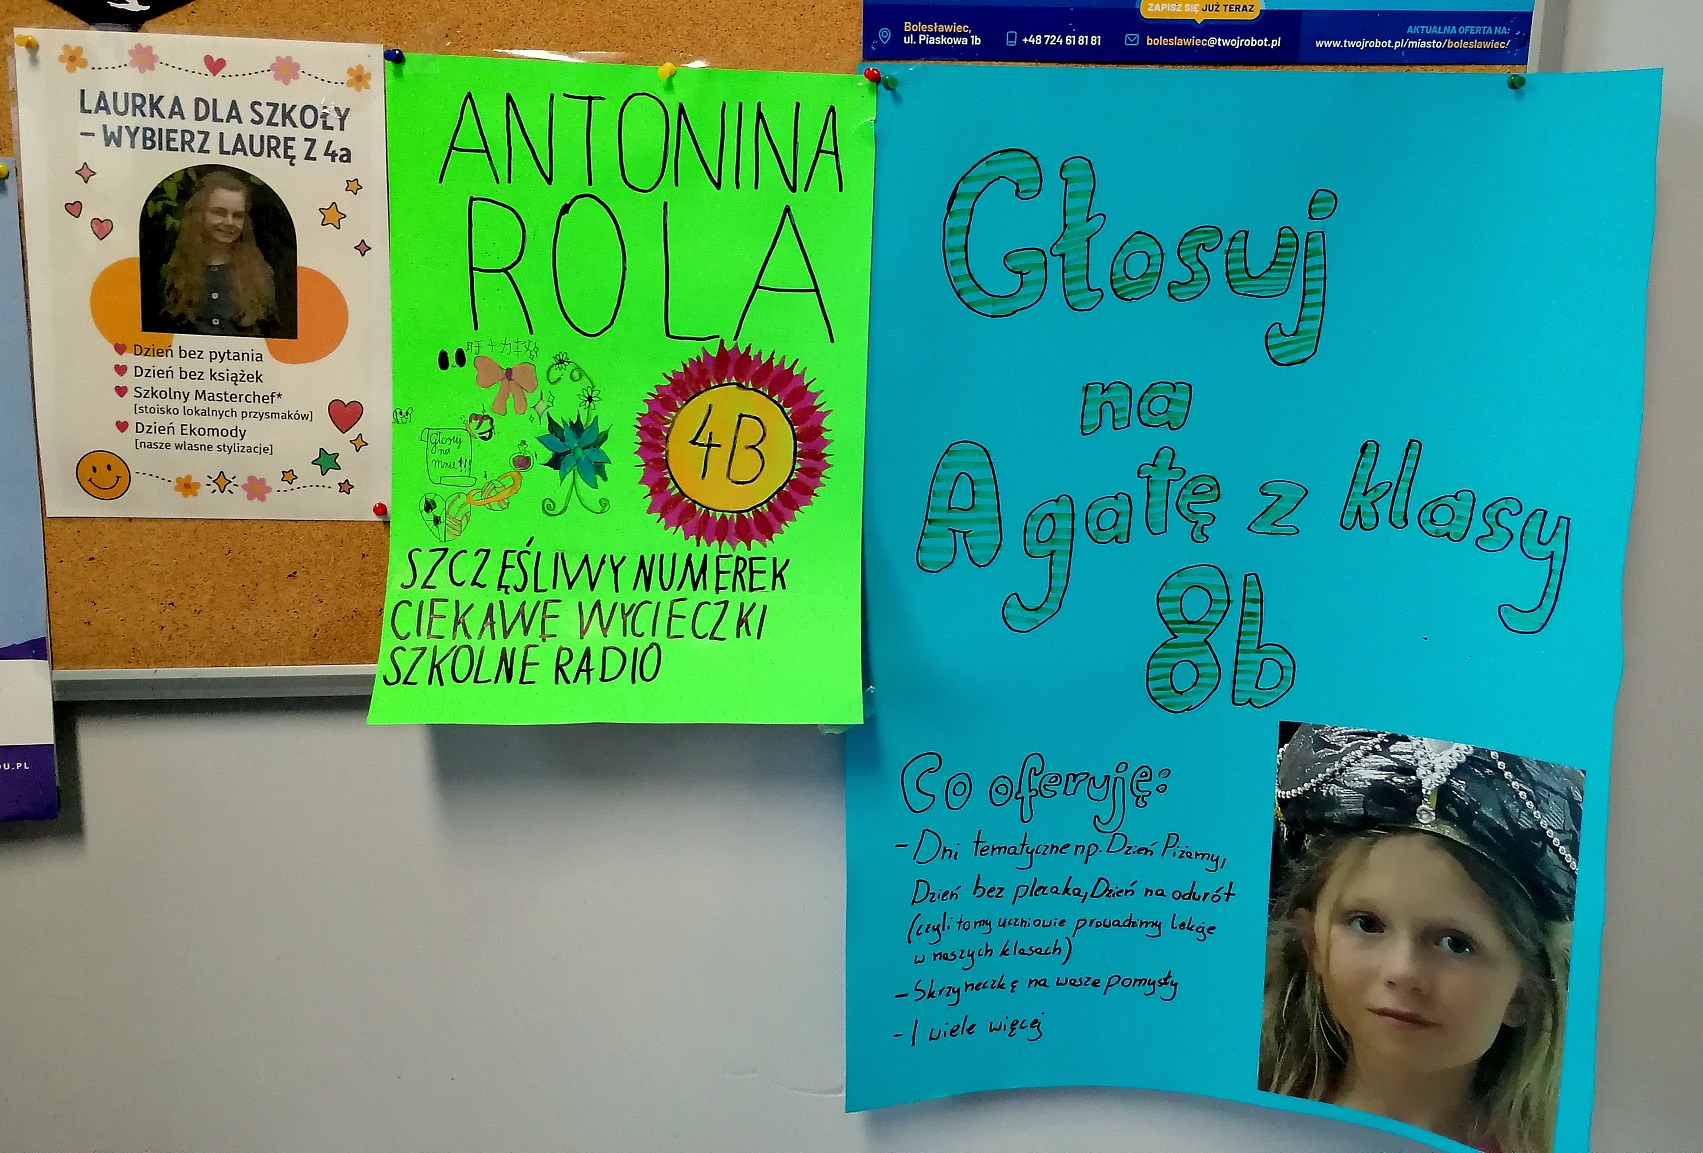 LAURKA DLA SZKOŁY
– WYBIERZ LAURĘ Z 4a
Dzień bez pytania
Dzień bez książek
Szkolny Masterchef*
[stoisko lokalnych przysmaków]
Dzień Ekomody
[nasze własne stylizacje]
OU.PL
ANTONINA
ROLA
4B
Głosuj
na
mnie!!
SZCZĘŚLIWY NUMEREK
CIEKAWE WYCIECZKI
SZKOLNE RADIO
ZAPISZ SIĘ JUŻ TERAZ
Bolesławiec,
ul. Piaskowa 1b
+48 724 61 81 81
boleslawiec@twojrobot.pl
AKTUALNA OFERTA NA:
www.twojrobot.pl/miasto/boleslawiec/
Głosuj
na
Agatę z klasy
8b
Co oferuję:
- Dni tematyczne np. Dzień Piżamy,
Dzień bez plecaka, Dzień na odwrót
(czyli to my uczniowie prowadzimy lekcje
w naszych klasach)
- Skrzyneczkę na wasze pomysły
- I wiele więcej